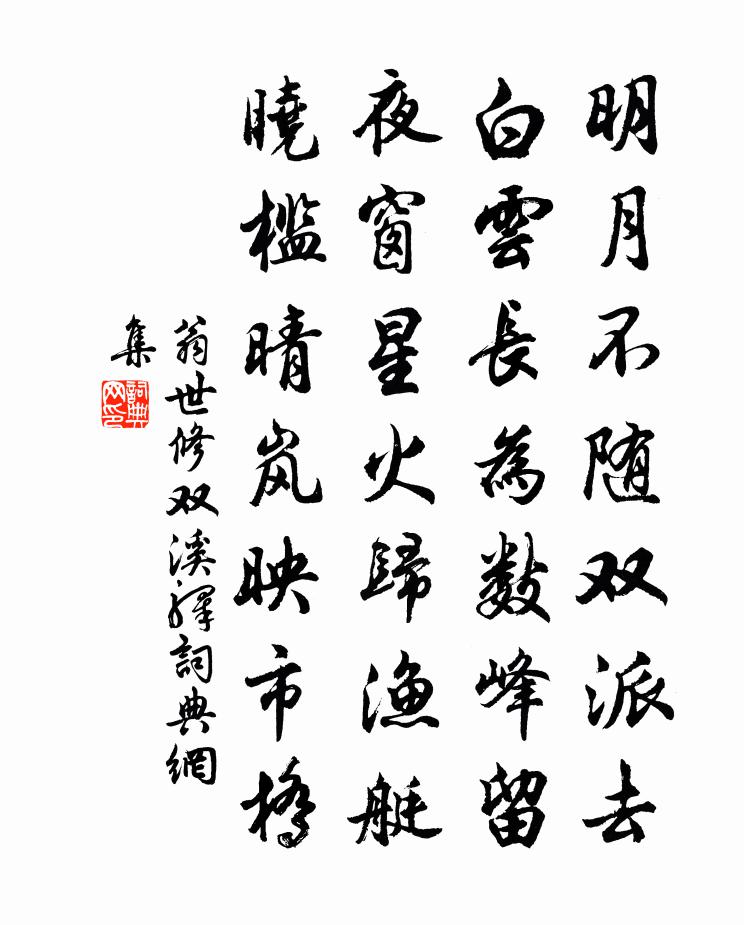 明月不随双派去
白雲長為数峰留
夜窗星火歸漁艇
曉檻晴岚映市橋
翁世修双溪驛詞典網
集
詞典
网印